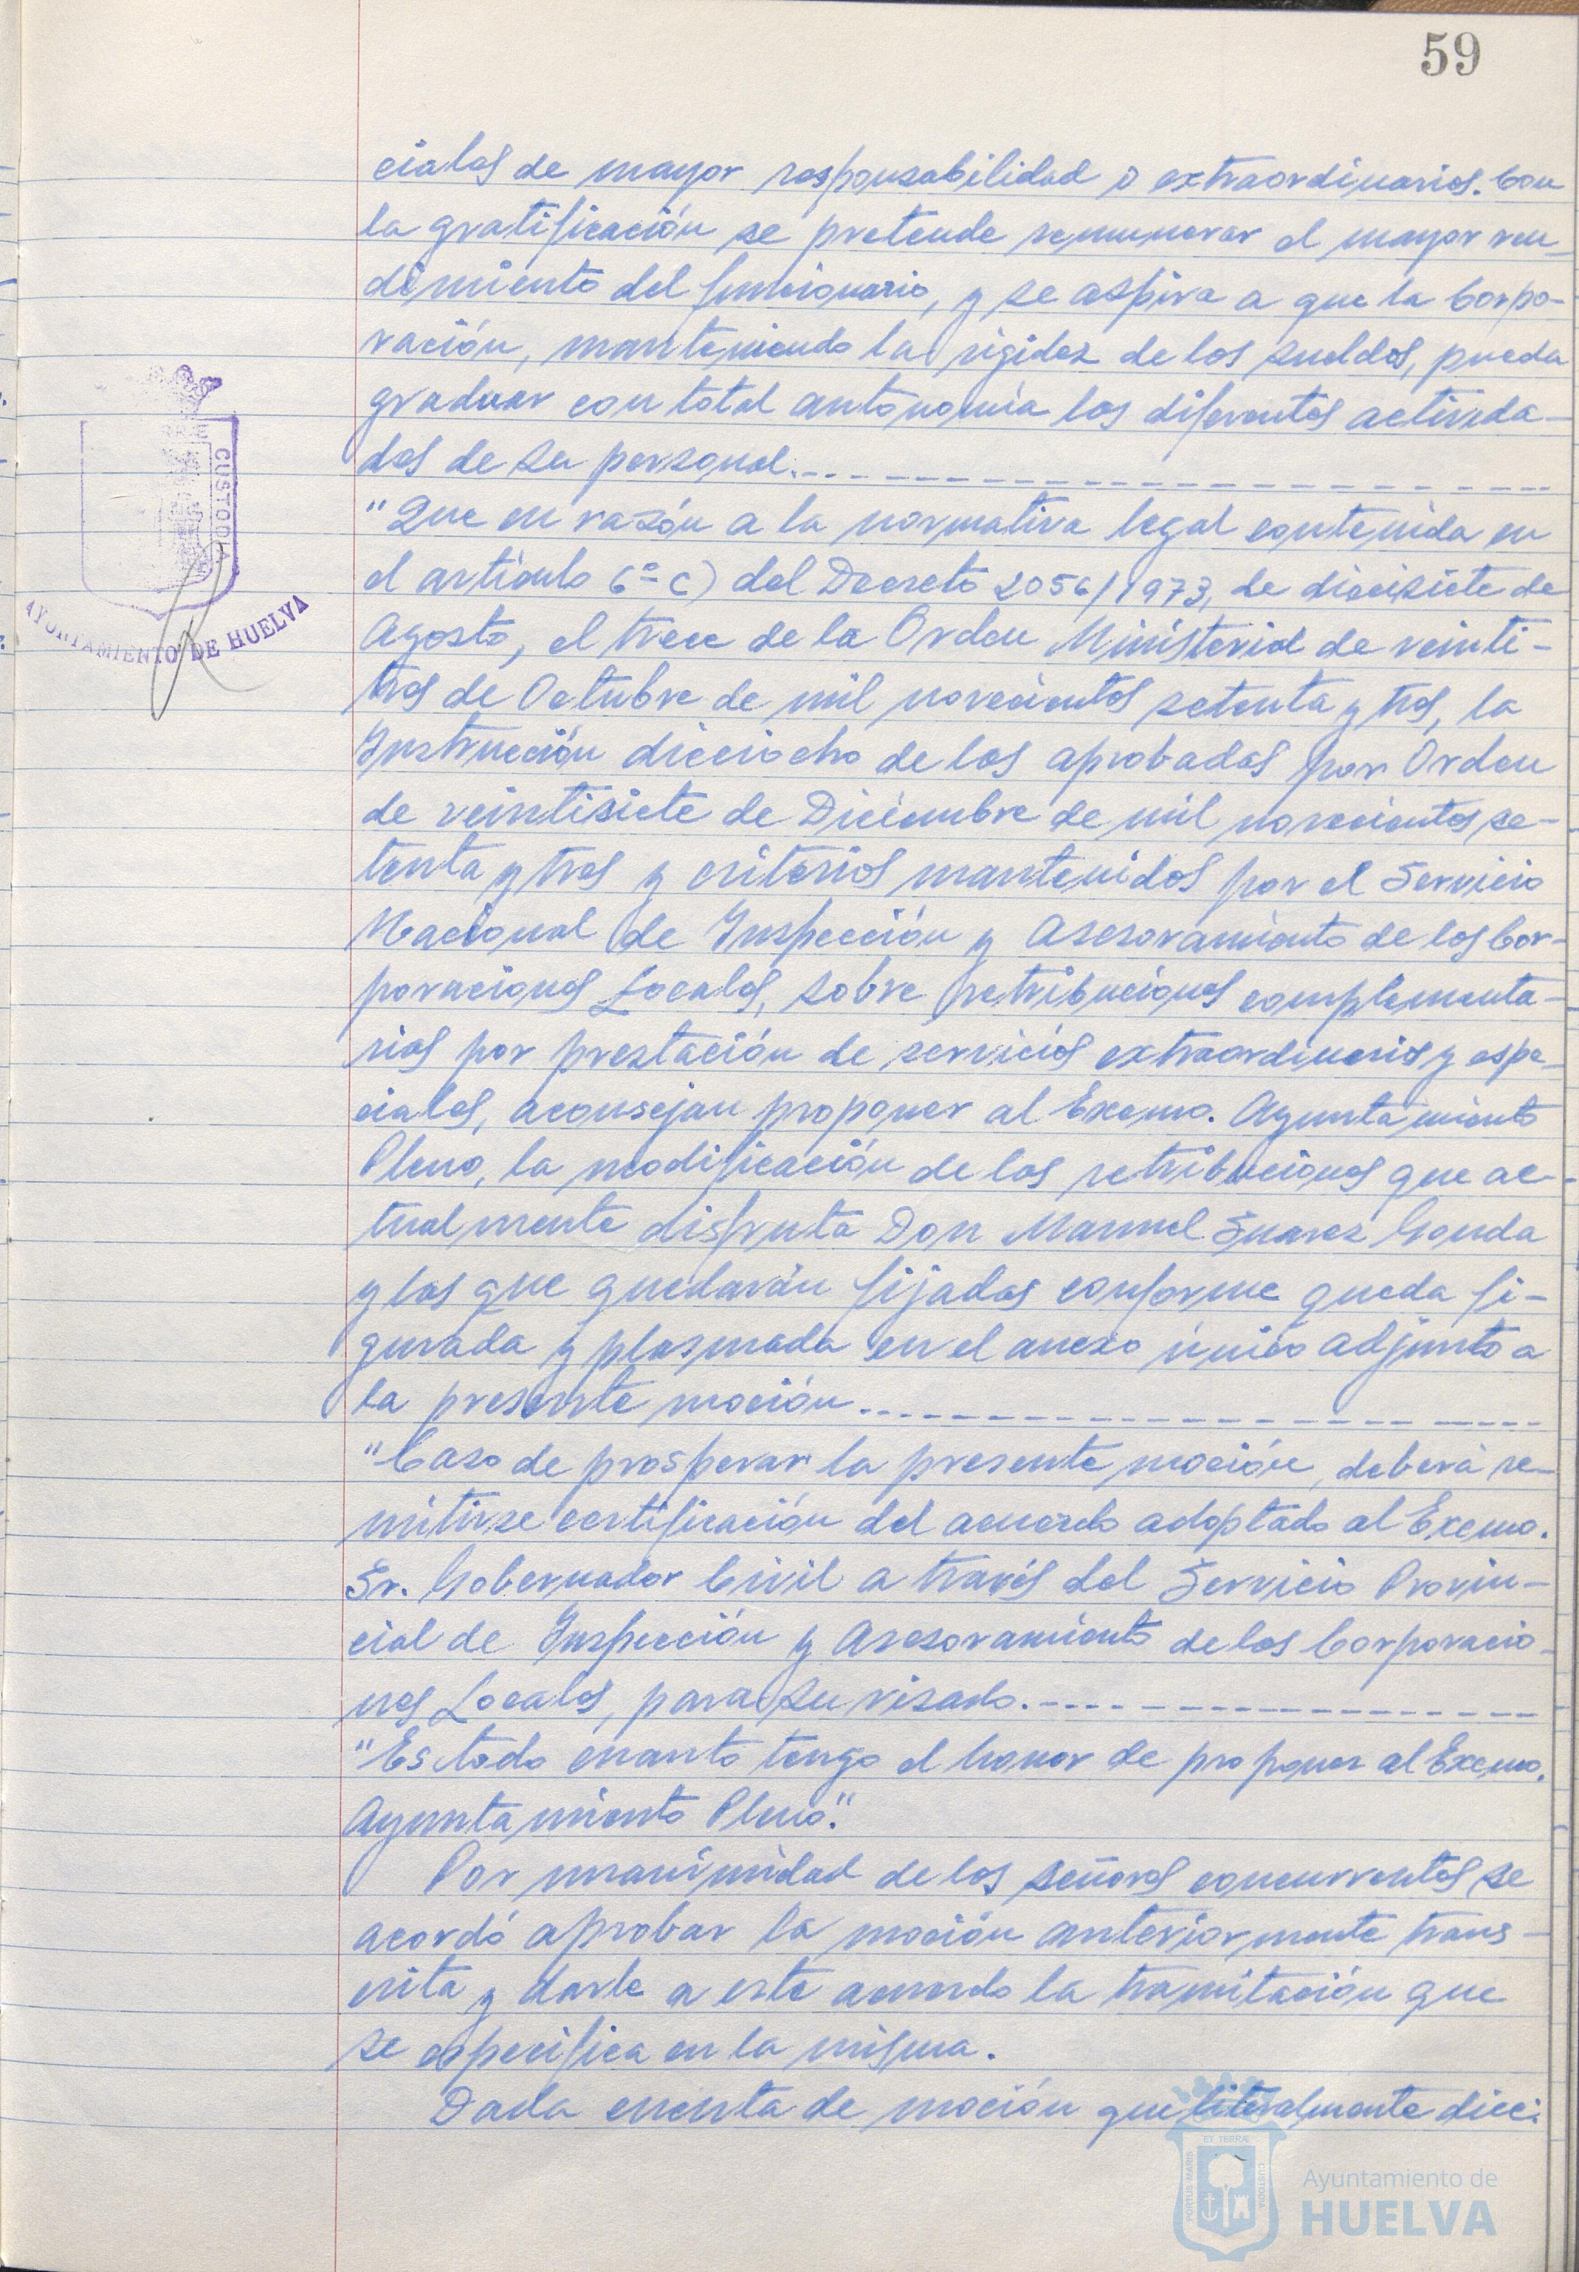 59
ciales de mayor responsabilidad o extraordinarios. Con
la gratificación se pretende remunerar el mayor ren-
dimiento del funcionario, y se aspira a que la Corpo-
ración, manteniendo la rigidez de los sueldos, pueda
graduar con total autonomía los diferentes activida-
des de su personal.
"Que en razón a la normativa legal contenida en
el artículo 6º-C) del Decreto 2056/1973, de diecisiete de
Agosto, el trece de la Orden Ministerial de veinti-
trés de Octubre de mil novecientos setenta y tres, la
Instrucción dieciocho de las aprobadas por Orden
de veintisiete de Diciembre de mil novecientos se-
tenta y tres y criterios mantenidos por el Servicio
Nacional de Inspección y Asesoramiento de las Cor-
poraciones Locales, sobre retribuciones complementa-
rias por prestación de servicios extraordinarios y espe-
ciales, aconsejan proponer al Excmo. Ayuntamiento
Pleno, la modificación de las retribuciones que ac-
tualmente disfruta Don Manuel Suarez
y las que quedarán fijadas conforme queda fi-
gurada y plasmada en el anexo único adjunto a
la presente moción.
"Caso de prosperar la presente moción, deberá re-
mitirse certificación del acuerdo adoptado al Excmo.
Sr. Gobernador Civil a través del Servicio Provin-
cial de Inspección y Asesoramiento de las Corporacio-
nes Locales, para su visado.
"Es todo cuanto tengo el honor de proponer al Excmo.
Ayuntamiento Pleno".
Por unanimidad de los señores concurrentes se
acordó aprobar la moción anteriormente trans-
crita y darle a este acuerdo la tramitación que
se especifica en la misma.
Dada cuenta de moción que literalmente dice:
CUSTODIA
AYUNTAMIENTO DE HUELVA
PORTUS MARIS
ET TERRAE
CUSTODIA
Ayuntamiento de
HUELVA